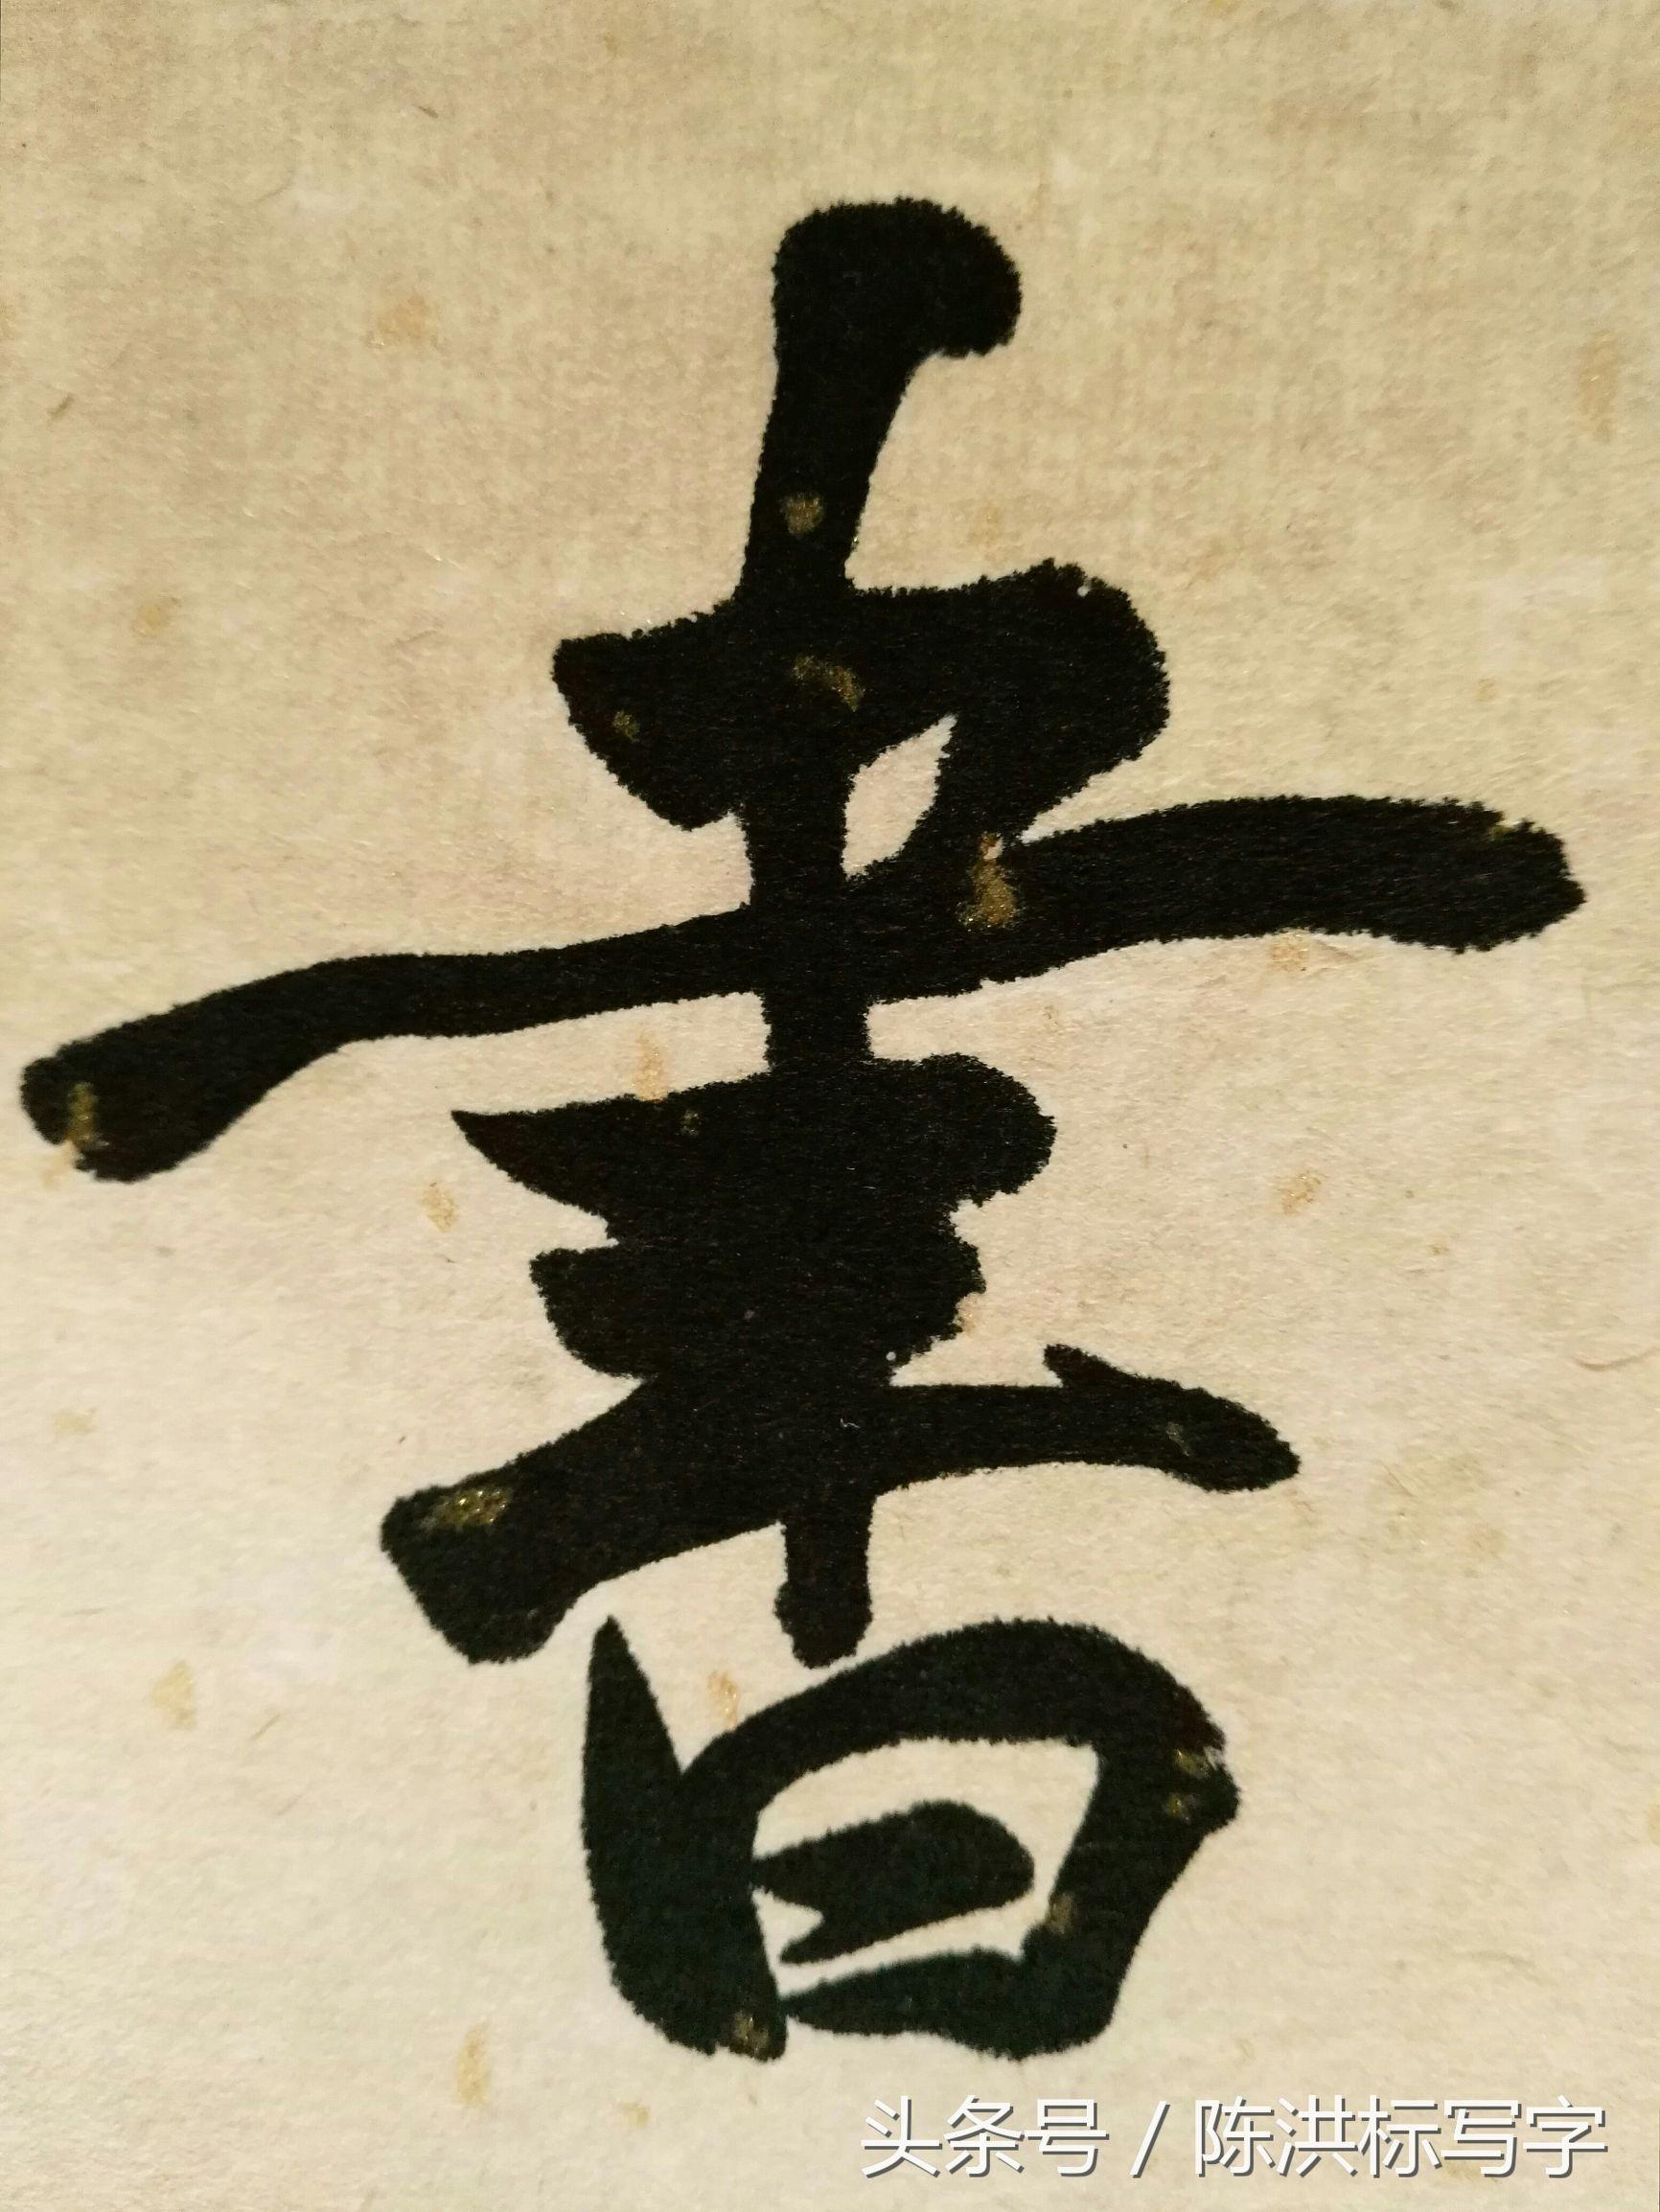 書
头条号 / 陈洪标写字